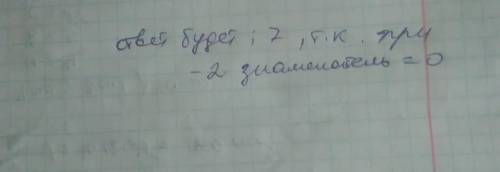 ответ будет: 7, т.к. при
-2 знаменатель = 0